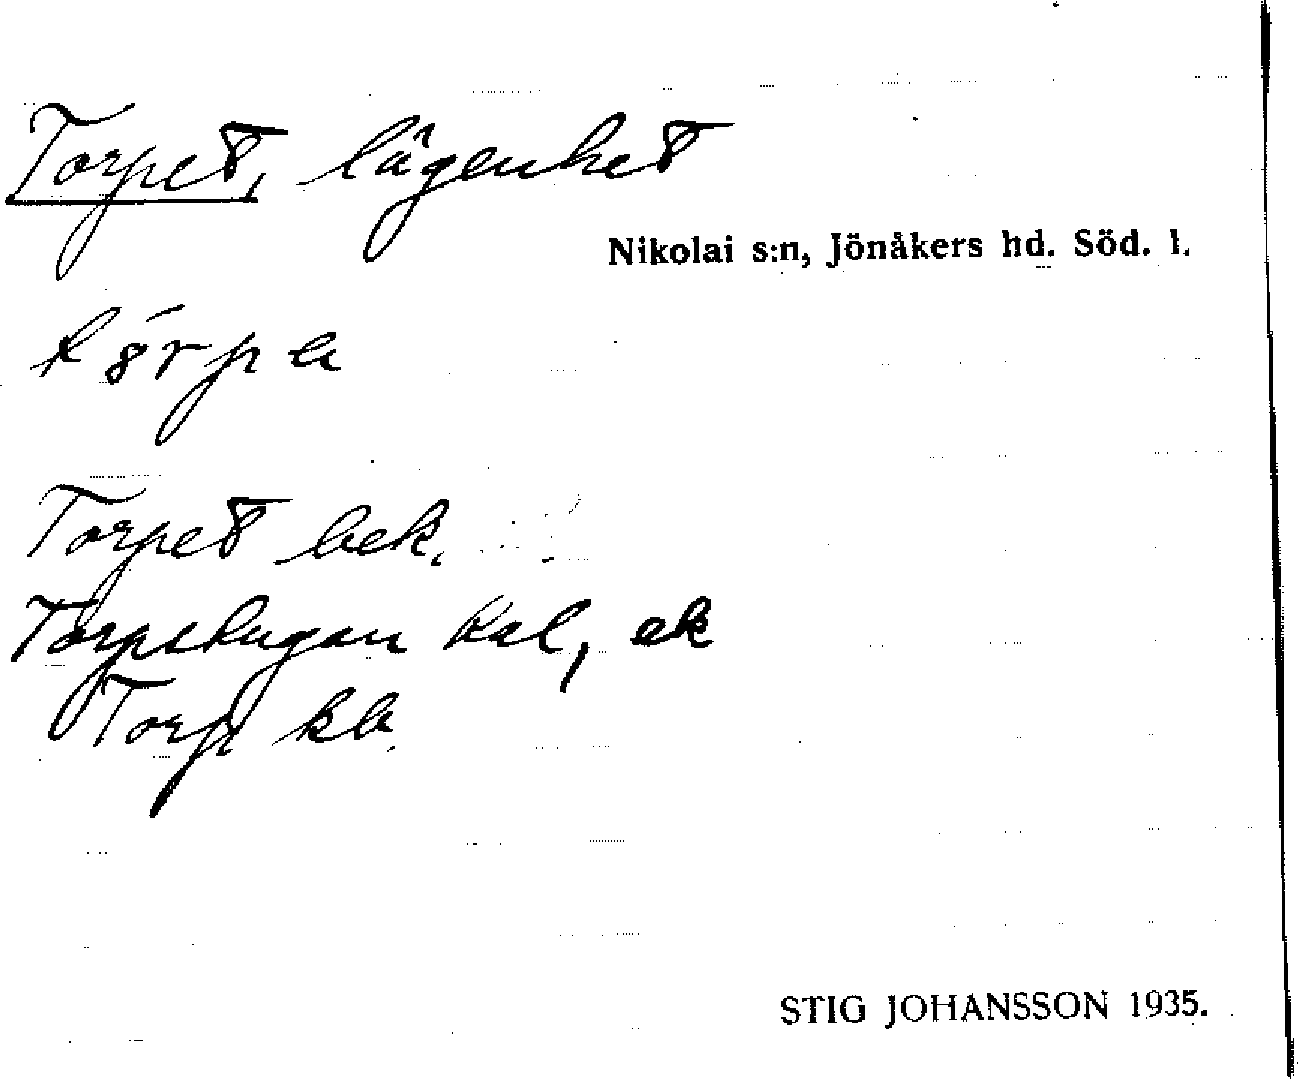 Torpet, lägenhet
Nikolai s:n, Jönåkers hd. Söd. l.
Torpet bek.
Torpstugan kal, ek
Torp kb.
STIG JOHANSSON 1935.